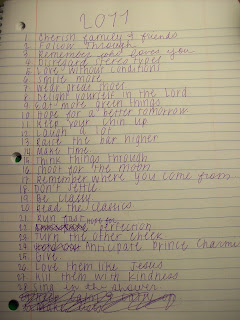 2011
1 Cherish family & friends
2 Follow Through
3 Remember who loves you
4 Disregard Stereotypes
5 Love without conditions
6 Smile more
7 Wear great shoes
8 Delight yourself in the Lord
9 Eat more green things
10 Hope for a better tomorrow
11 Keep your chin up
12 Laugh a lot
13 Raise the bar higher
14 Make time
15 Think things through
16 Shoot for the moon
17 Remember where you come from
18 Don't settle
19 Be classy
20 Read the classics
21 Run fast
22 hope for perfection
23 Turn the other cheek
24 Anticipate Prince Charming
25 Give
26 Love them like Jesus
27 Kill them with kindness
28 Sing in the shower